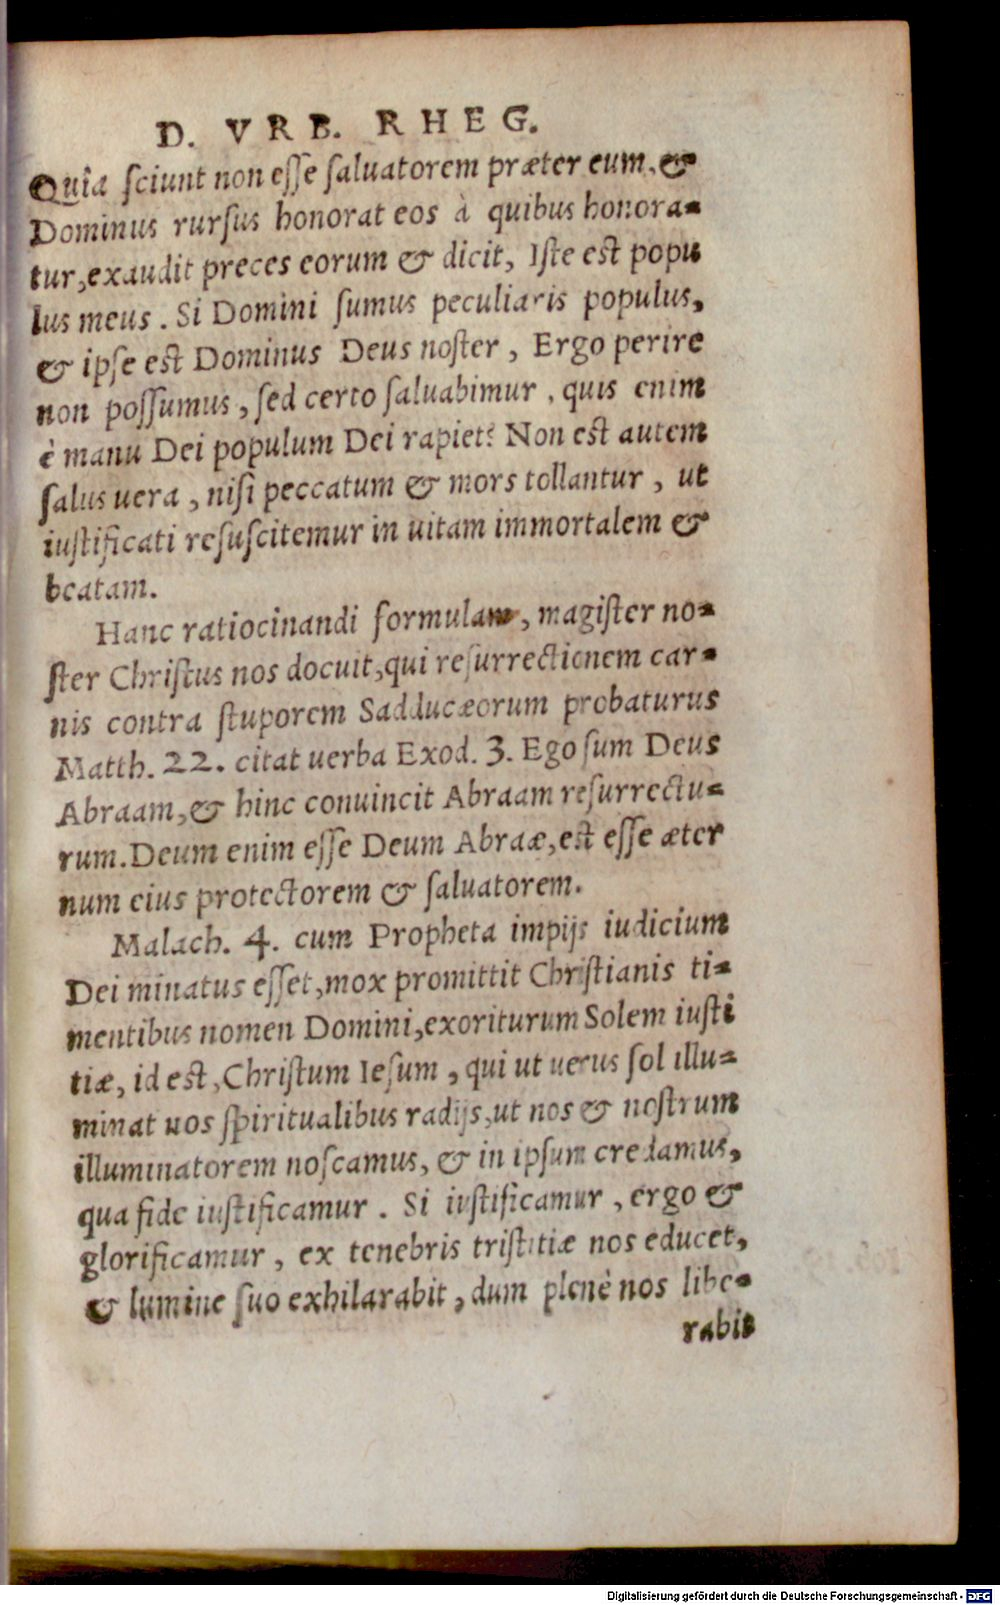 D. VRB. RHEG.
Quia sciunt non esse saluatorem præter eum, &
Dominus rursus honorat eos à quibus honora-
tur, exaudit preces eorum & dicit, Iste est popu
lus meus. Si Domini sumus peculiaris populus,
& ipse est Dominus Deus noster, Ergo perire
non possumus, sed certo saluabimur, quis enim
è manu Dei populum Dei rapiet? Non est autem
salus uera, nisi peccatum & mors tollantur, ut
iustificati resuscitemur in uitam immortalem &
beatam.
Hanc ratiocinandi formulam, magister no-
ster Christus nos docuit, qui resurrectionem car-
nis contra stuporem Sadducæorum probaturus
Matth. 22. citat uerba Exod. 3. Ego sum Deus
Abraam, & hinc conuincit Abraam resurrectu-
rum. Deum enim esse Deum Abraæ, est esse æter
num eius protectorem & saluatorem.
Malach. 4. cum Propheta impijs iudicium
Dei minatus esset, mox promittit Christianis ti-
mentibus nomen Domini, exoriturum Solem iusti
tiæ, id est, Christum Iesum, qui ut uerus sol illu-
minat uos spiritualibus radijs, ut nos & nostrum
illuminatorem noscamus, & in ipsum credamus,
qua fide iustificamur. Si iustificamur, ergo &
glorificamur, ex tenebris tristitiæ nos educet,
& lumine suo exhilarabit, dum plenè nos libe-
rabit
Digitalisierung gefördert durch die Deutsche Forschungsgemeinschaft - DFG